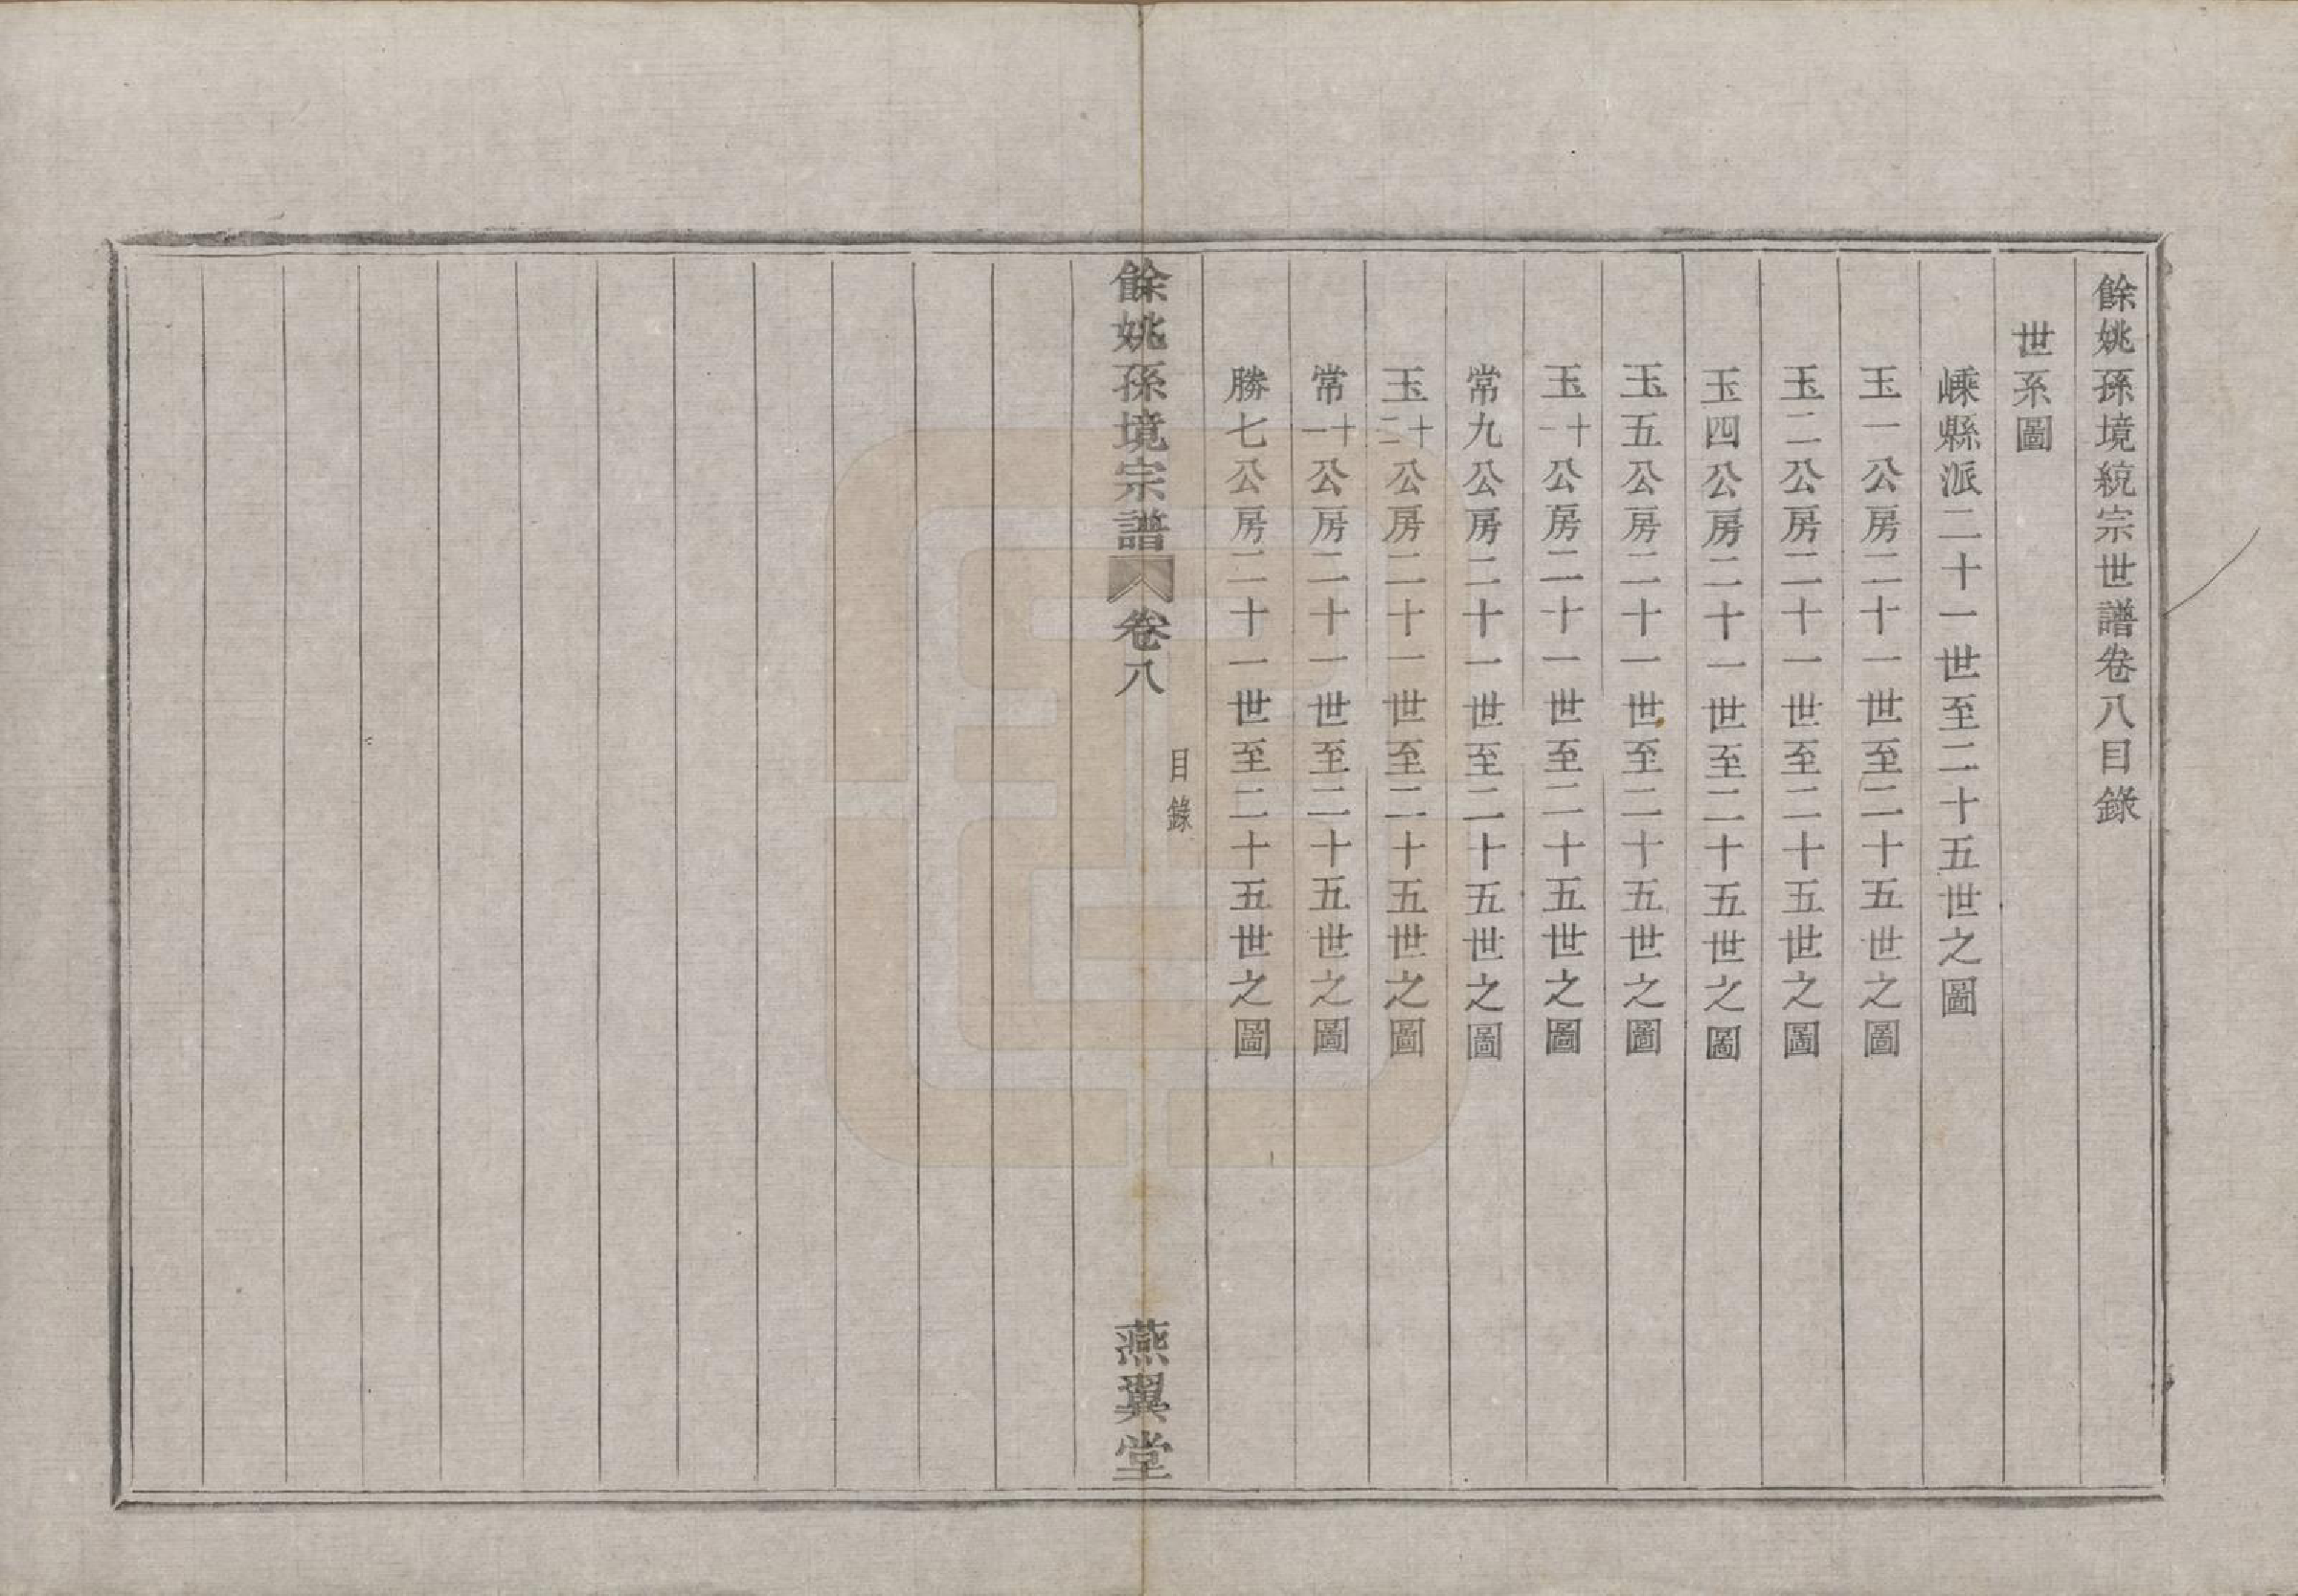 餘姚孫境統宗世譜卷八目錄
世系圖
嵊縣派二十一世至二十五世之圖
玉一公房二十一世至二十五世之圖
玉二公房二十一世至二十五世之圖
玉四公房二十一世至二十五世之圖
玉五公房二十一世至二十五世之圖
玉十一公房二十一世至二十五世之圖
常九公房二十一世至二十五世之圖
玉十二公房二十一世至二十五世之圖
常十一公房二十一世至二十五世之圖
勝七公房二十一世至二十五世之圖
餘姚孫境宗譜 卷八 目錄 燕翼堂